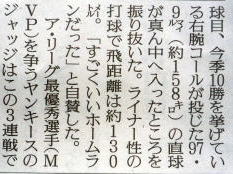 球目、今季10勝を挙げてい
る右腕コールが投じた97・
9㍄(約158㌔)の直球
が真ん中へ入ったところを
振り抜いた。ライナー性の
打球で飛距離は約130
㍍。「すごくいいホームラ
ンだった」と自賛した。
ア・リーグ最優秀選手(M
VP)を争うヤンキースの
ジャッジはこの3連戦で